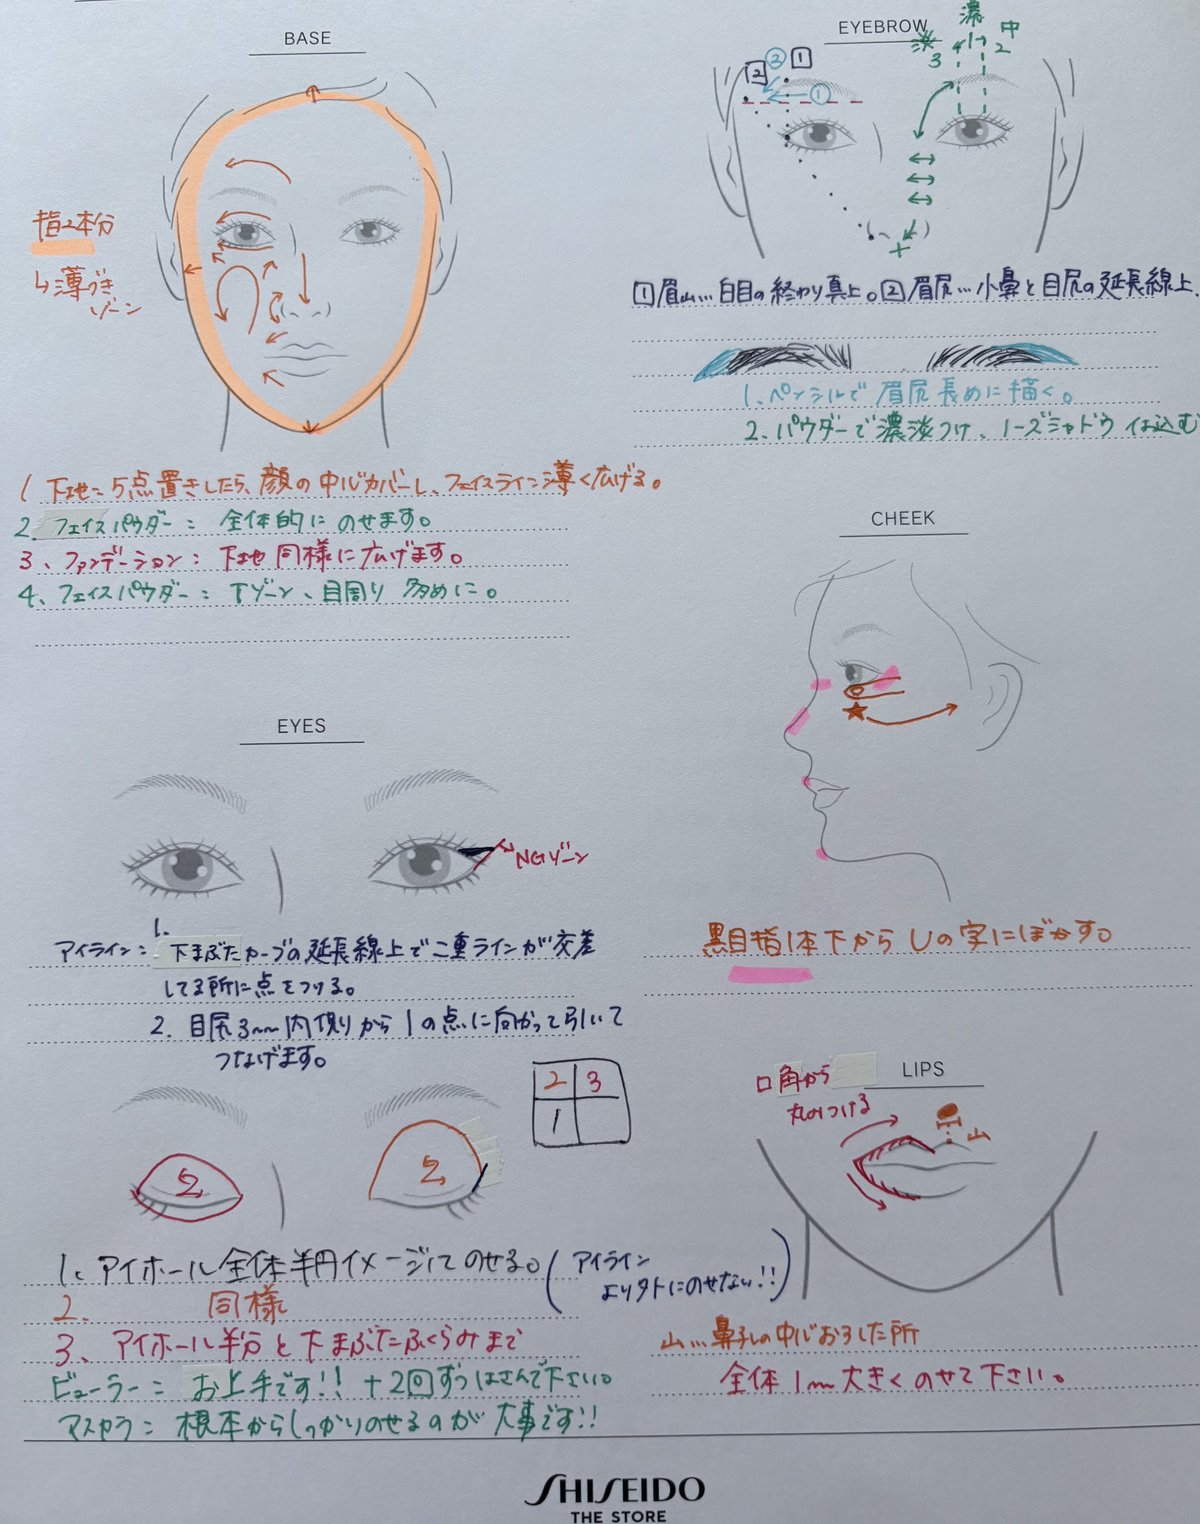 BASE
指2本分
↳薄づき
ゾーン
1 下地=5点置きしたら、顔の中心カバーし、フェイスライン薄く広げる。
2. フェイスパウダー: 全体的にのせます。
3、ファンデーション: 下地同様に広げます。
4、フェイスパウダー: Tゾーン、目周り多めに。
EYEBROW
淡 濃 中
3 1 2
② 1
2 ①
1 眉山…白目の終わり真上。2 眉尻…小鼻と目尻の延長線上.
1、ペンシルで眉尻長めに描く。
2、パウダーで濃淡つけ、ノーズシャドウ仕込む
CHEEK
黒目指1本下からUの字にぼかす。
EYES
NGゾーン
アイライン: 1. 下まぶたカーブの延長線上で二重ラインが交差
してる所に点をつける。
2. 目尻3mm内側から1の点に向かって引いて
つなげます。
2 3
1
2 2
1、アイホール全体半円イメージにてのせる。(アイライン
より外にのせない!!)
2. 同様
3、アイホール半分と下まぶたふくらみまで
ビューラー: お上手です!! +2回ずつはさんで下さい。
マスカラ: 根本からしっかりのせるのが大事です!!
LIPS
口角から
丸みつける
山
山…鼻の中心おろした所
全体1mm大きくのせて下さい。
SHISEIDO
THE STORE